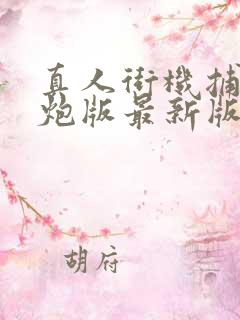 真人街機捕
炮版最新版
胡府